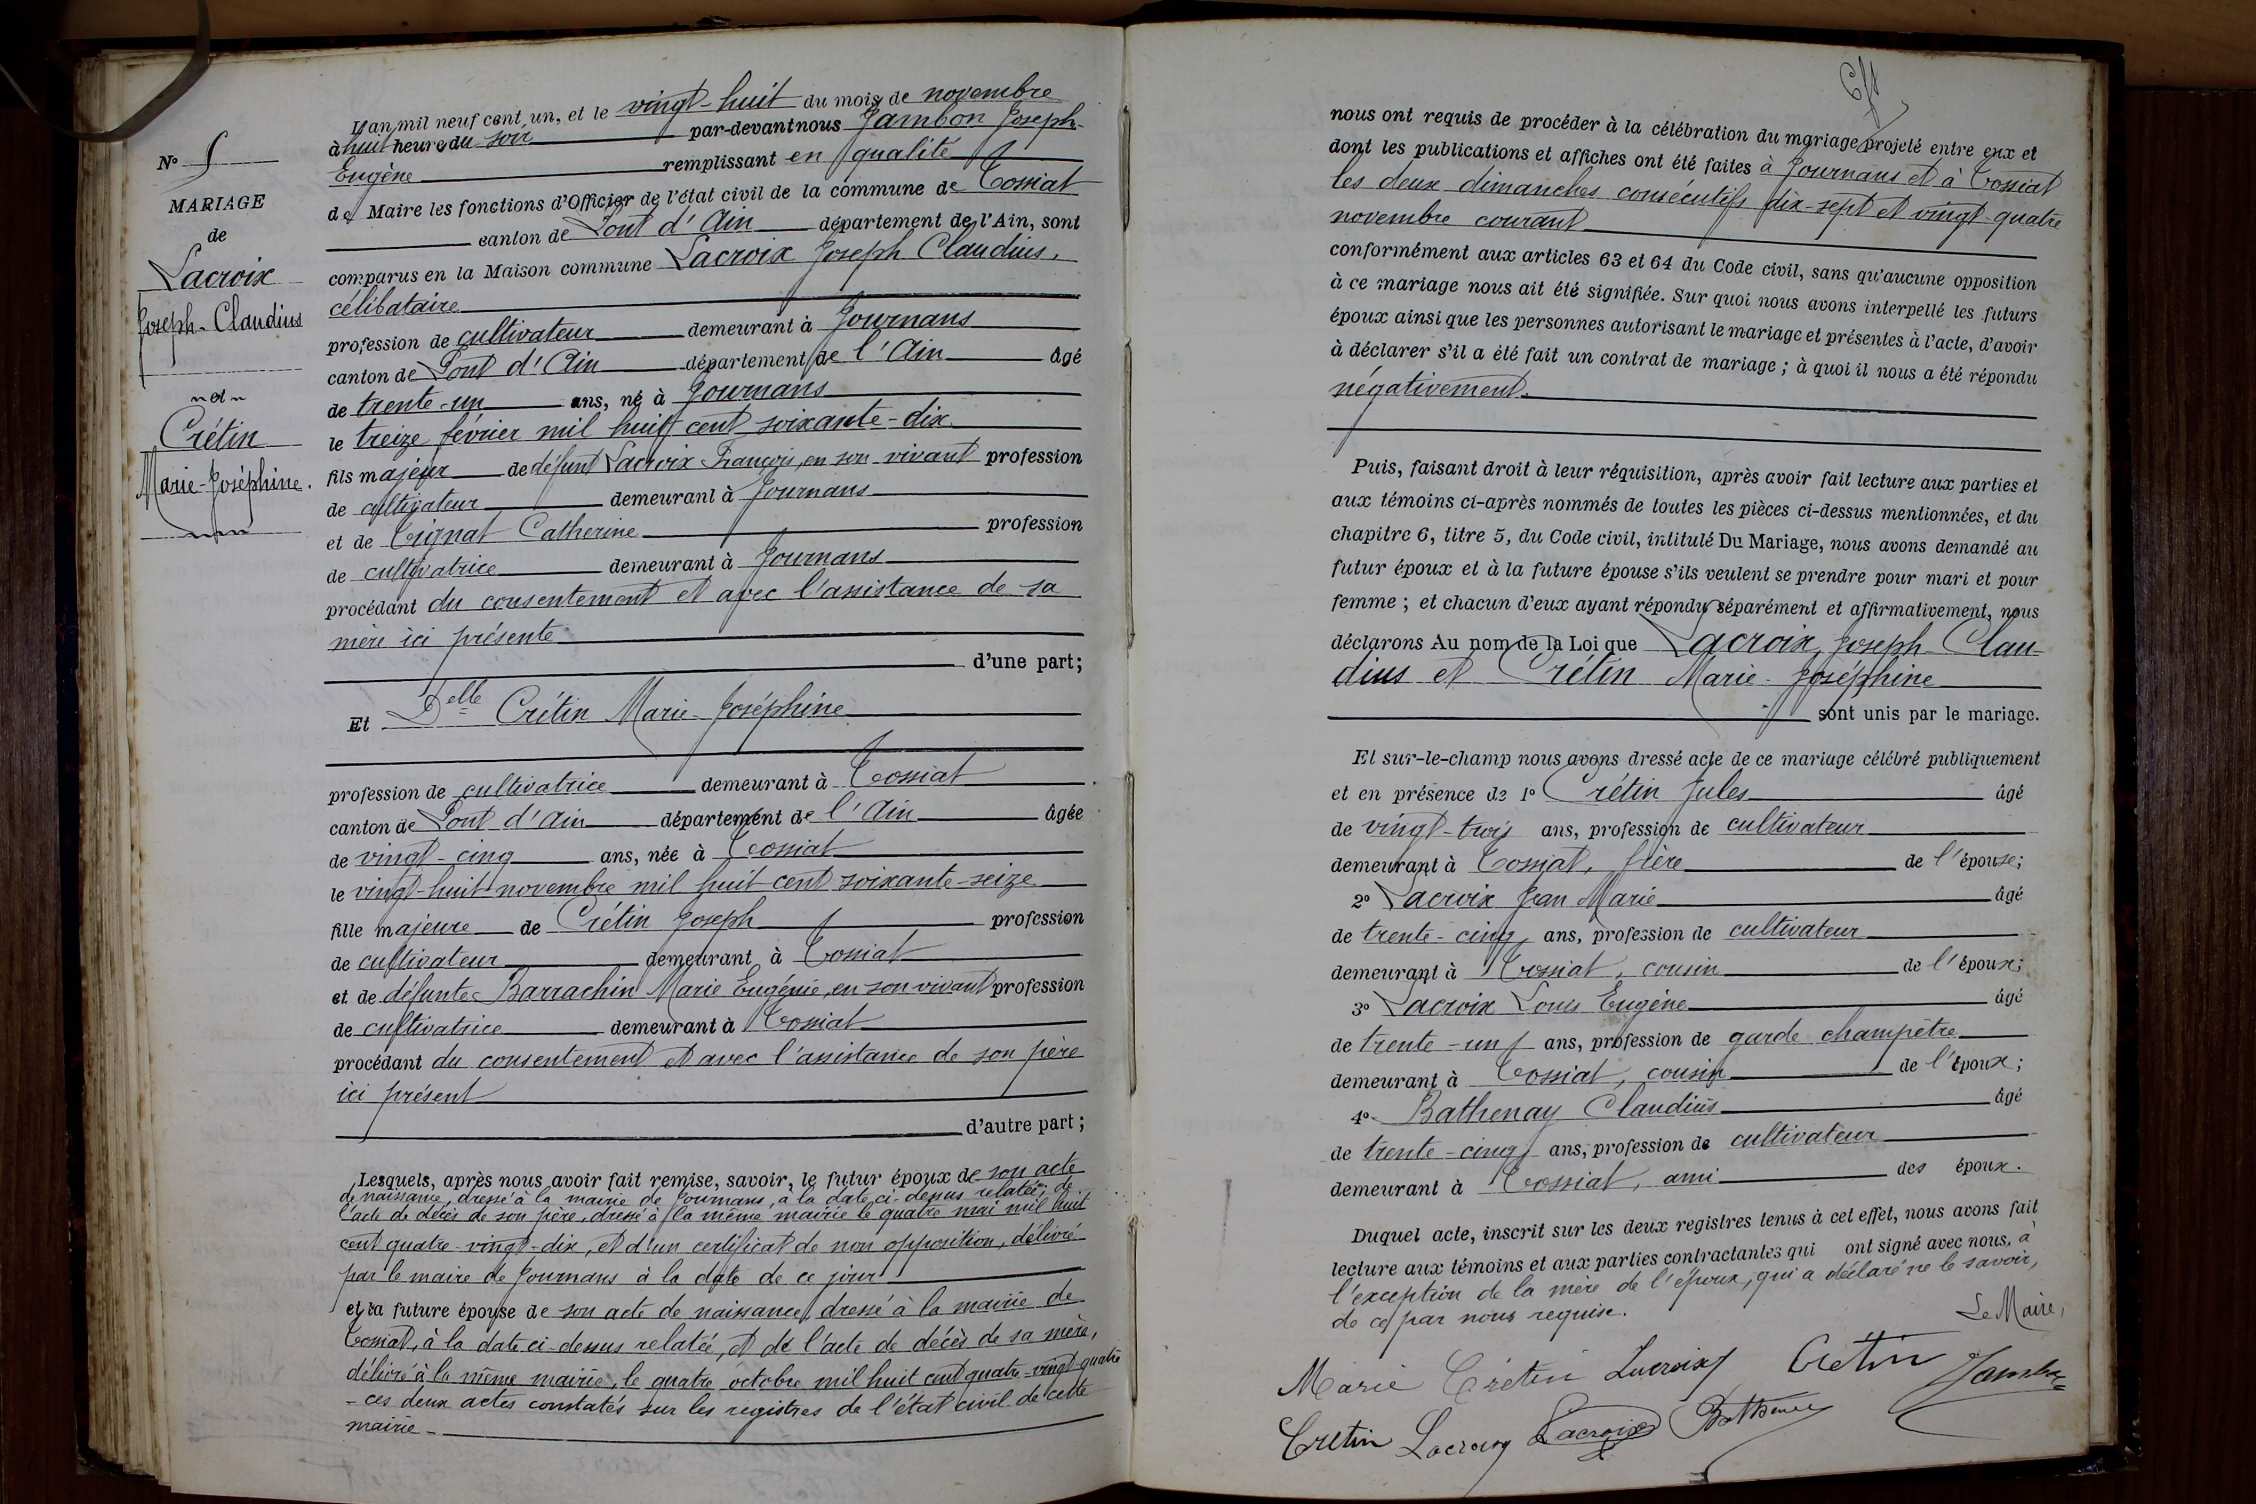 N° 5
MARIAGE
de
Lacroix
Joseph-Claudius
et
Crétin
Marie-Joséphine.
L'an mil neuf cent un, et le vingt-huit du mois de novembre
à huit heure du soir par-devant nous Jambon Joseph-
Eugène remplissant en qualité
de Maire les fonctions d'Officier de l'état civil de la commune de Tossiat
canton de Pont d'Ain département de l'Ain, sont
comparus en la Maison commune Lacroix Joseph Claudius,
célibataire
profession de cultivateur demeurant à Journans
canton de Pont d'Ain département de l'Ain âgé
de trente-un ans, né à Journans
le treize février mil huit cent soixante-dix
fils majeur de défunt Lacroix François, en son vivant profession
de cultivateur demeurant à Journans
et de Tignat Catherine profession
de cultivatrice demeurant à Journans
procédant du consentement et avec l'assistance de sa
mère ici présente
d'une part;
Et Delle Crétin Marie-Joséphine
profession de cultivatrice demeurant à Tossiat
canton de Pont d'Ain département de l'Ain âgée
de vingt-cinq ans, née à Tossiat
le vingt-huit novembre mil huit cent soixante-seize
fille majeure de Crétin Joseph profession
de cultivateur demeurant à Tossiat
et de défunte Barrachin Marie Eugénie, en son vivant profession
de cultivatrice demeurant à Tossiat
procédant du consentement et avec l'assistance de son père
ici présent
d'autre part;
Lesquels, après nous avoir fait remise, savoir, le futur époux de son acte
de naissance, dressé à la mairie de Journans, à la date ci-dessus relatée; de
l'acte de décès de son père, dressé à la même mairie le quatre mai mil huit
cent quatre-vingt-dix, et d'un certificat de non opposition, délivré
par le maire de Journans à la date de ce jour
et la future épouse de son acte de naissance, dressé à la mairie de
Tossiat, à la date ci-dessus relatée, et de l'acte de décès de sa mère,
délivré à la même mairie, le quatre octobre mil huit cent quatre-vingt-quatre
- ces deux actes constatés sur les registres de l'état civil de cette
mairie -
nous ont requis de procéder à la célébration du mariage projeté entre eux et
dont les publications et affiches ont été faites à Journans et à Tossiat
les deux dimanches consécutifs dix-sept et vingt-quatre
novembre courant
conformément aux articles 63 et 64 du Code civil, sans qu'aucune opposition
à ce mariage nous ait été signifiée. Sur quoi nous avons interpellé les futurs
époux ainsi que les personnes autorisant le mariage et présentes à l'acte, d'avoir
à déclarer s'il a été fait un contrat de mariage; à quoi il nous a été répondu
négativement.
Puis, faisant droit à leur réquisition, après avoir fait lecture aux parties et
aux témoins ci-après nommés de toutes les pièces ci-dessus mentionnées, et du
chapitre 6, titre 5, du Code civil, intitulé Du Mariage, nous avons demandé au
futur époux et à la future épouse s'ils veulent se prendre pour mari et pour
femme; et chacun d'eux ayant répondu séparément et affirmativement, nous
déclarons Au nom de la Loi que Lacroix Joseph Clau-
dius et Crétin Marie-Joséphine
sont unis par le mariage.
Et sur-le-champ nous avons dressé acte de ce mariage célébré publiquement
et en présence de 1° Crétin Jules âgé
de vingt-trois ans, profession de cultivateur
demeurant à Tossiat, frère de l'épouse;
2° Lacroix Jean Marie âgé
de trente-cinq ans, profession de cultivateur
demeurant à Tossiat, cousin de l'époux;
3° Lacroix Louis Eugène âgé
de trente-un ans, profession de garde champêtre
demeurant à Tossiat, cousin de l'époux;
4° Bathenay Claudius âgé
de trente-cinq ans, profession de cultivateur
demeurant à Tossiat, ami des époux.
Duquel acte, inscrit sur les deux registres tenus à cet effet, nous avons fait
lecture aux témoins et aux parties contractantes qui ont signé avec nous, à
l'exception de la mère de l'époux, qui a déclaré ne le savoir,
de ce par nous requise.
Le Maire,
Marie Crétin Lacroix Crétin Jambon
Cretin Lacroix Lacroix Bathenay